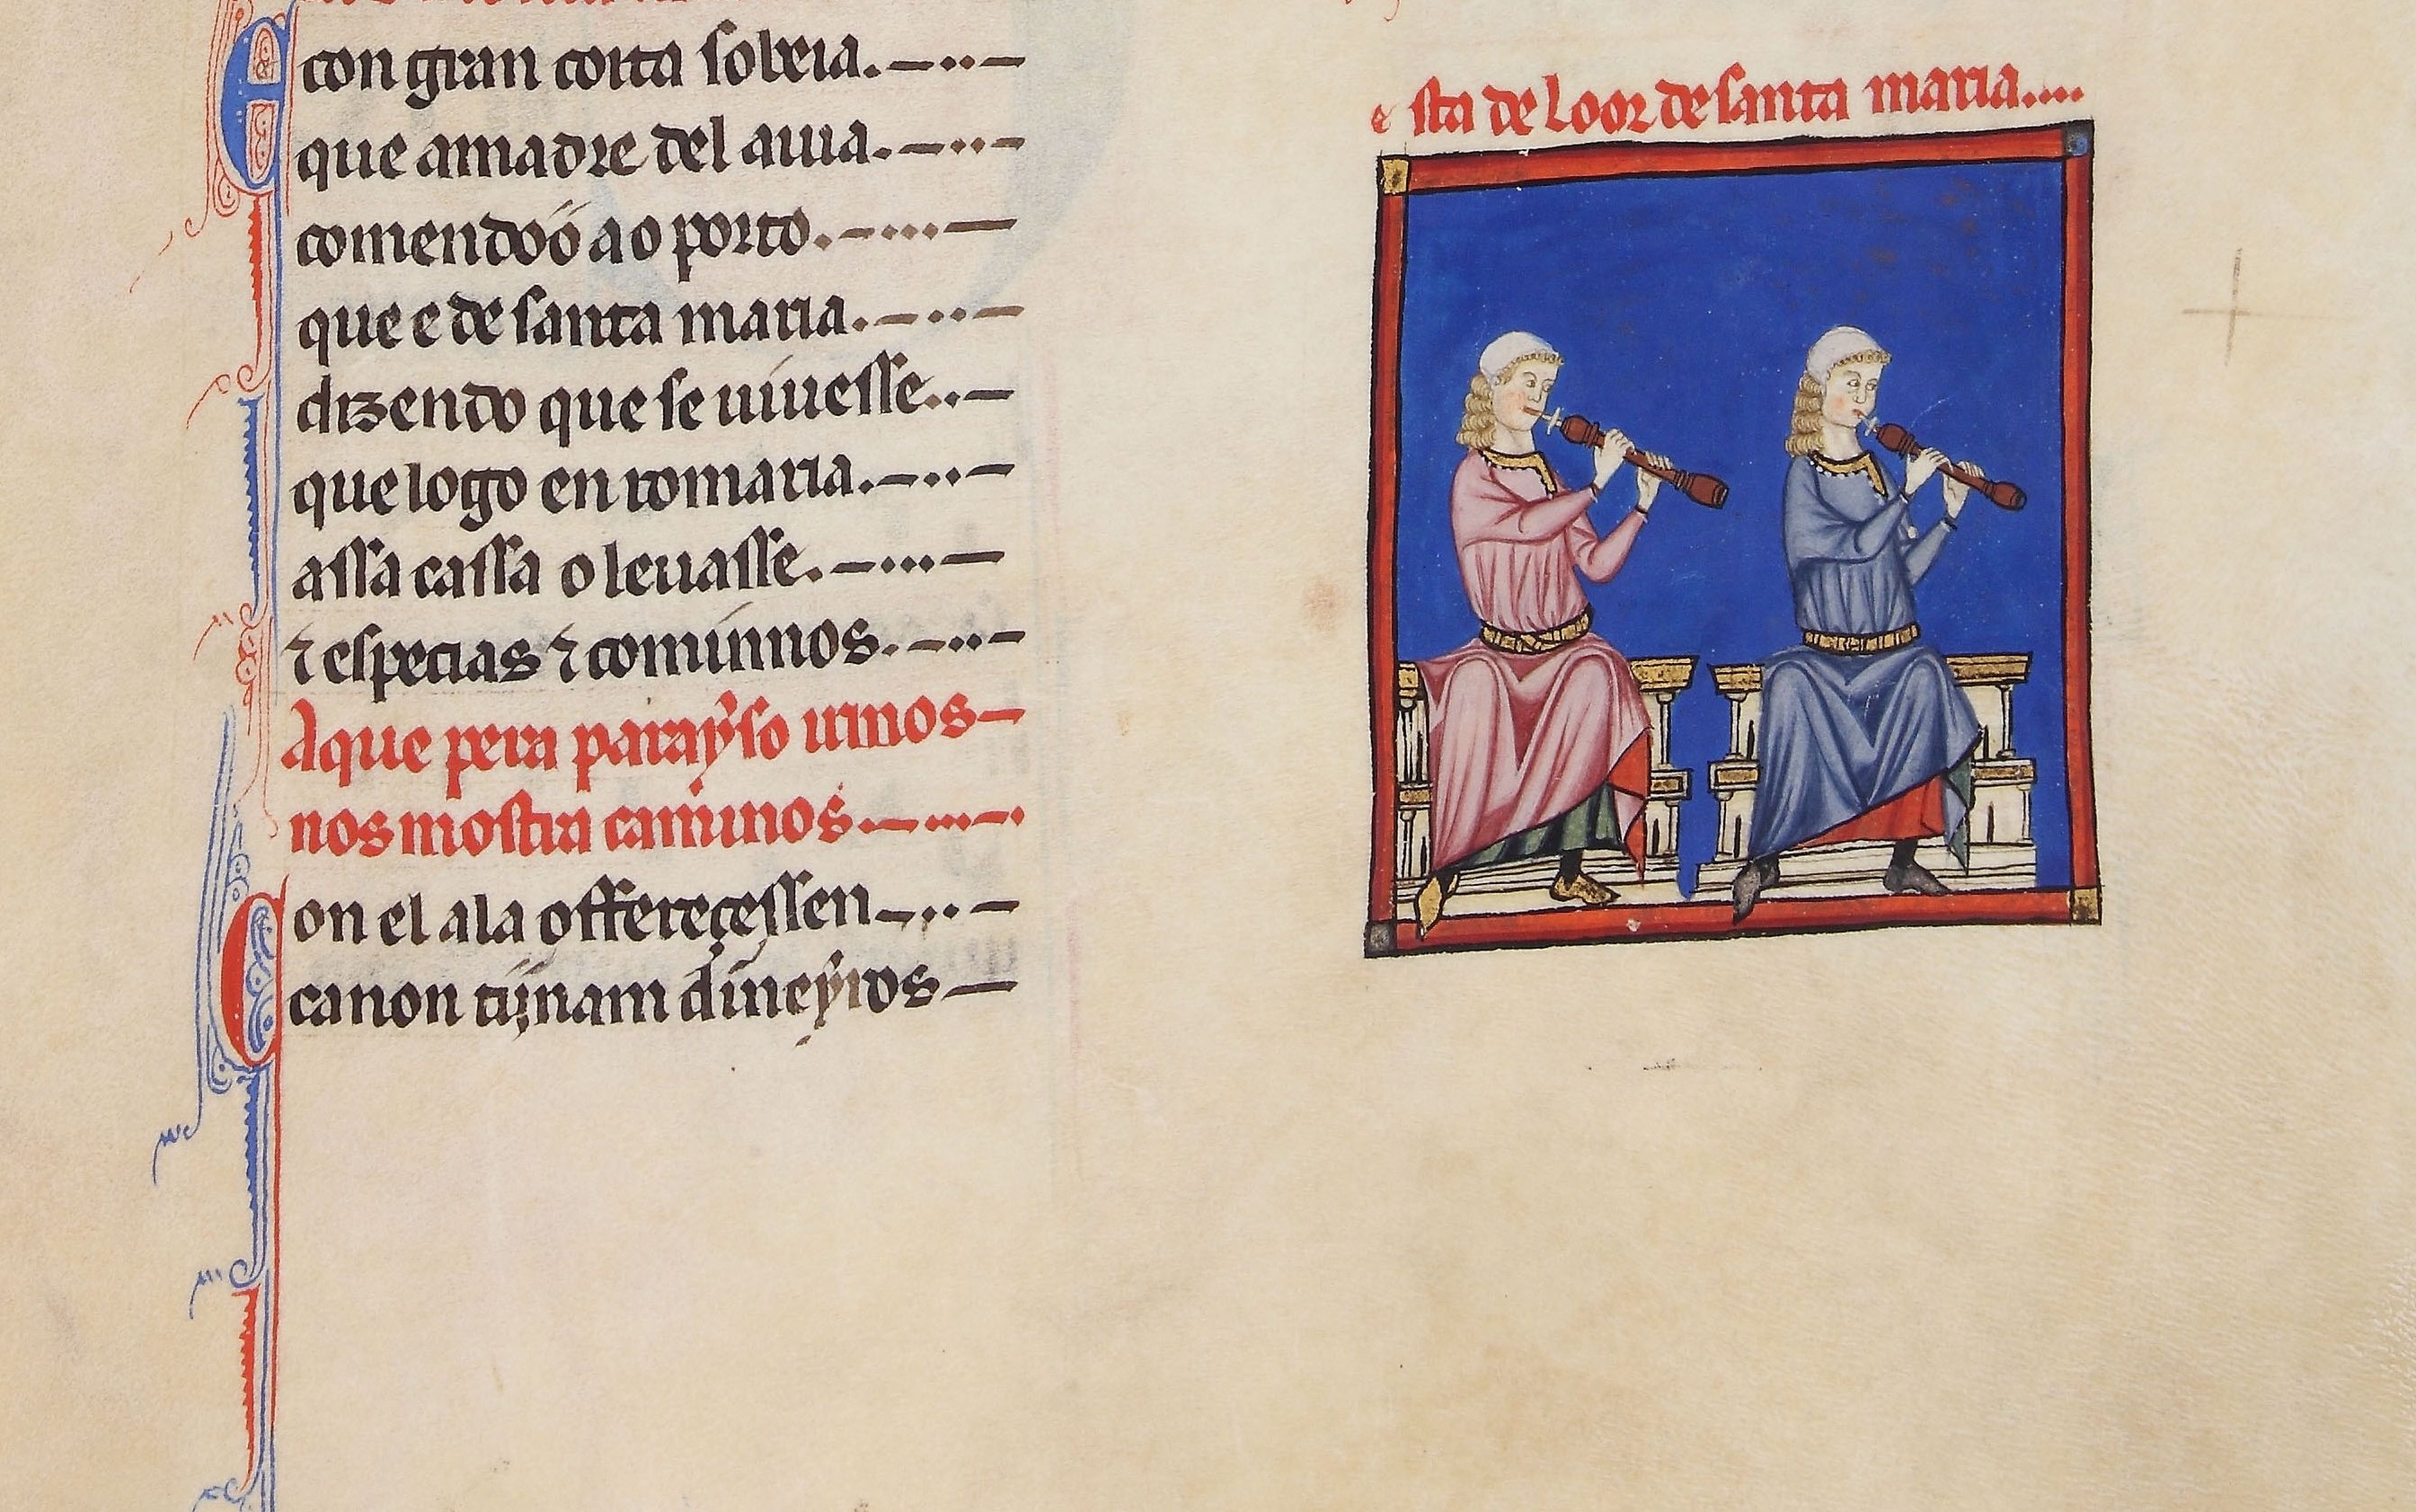 con gran coita sobeia.
que a madre del auia.
comendóó a o porto.
que e de santa maria.
dizendo que se uiuesse..
que logo en romaria.
assa cassa o leuasse.
⁊ especias ⁊ cominnos.
A que pera parayso irmos
nos mostra caminos.
Con el a la offereçessen
ca non tijnnam dineyros
esta de loor de santa maria....